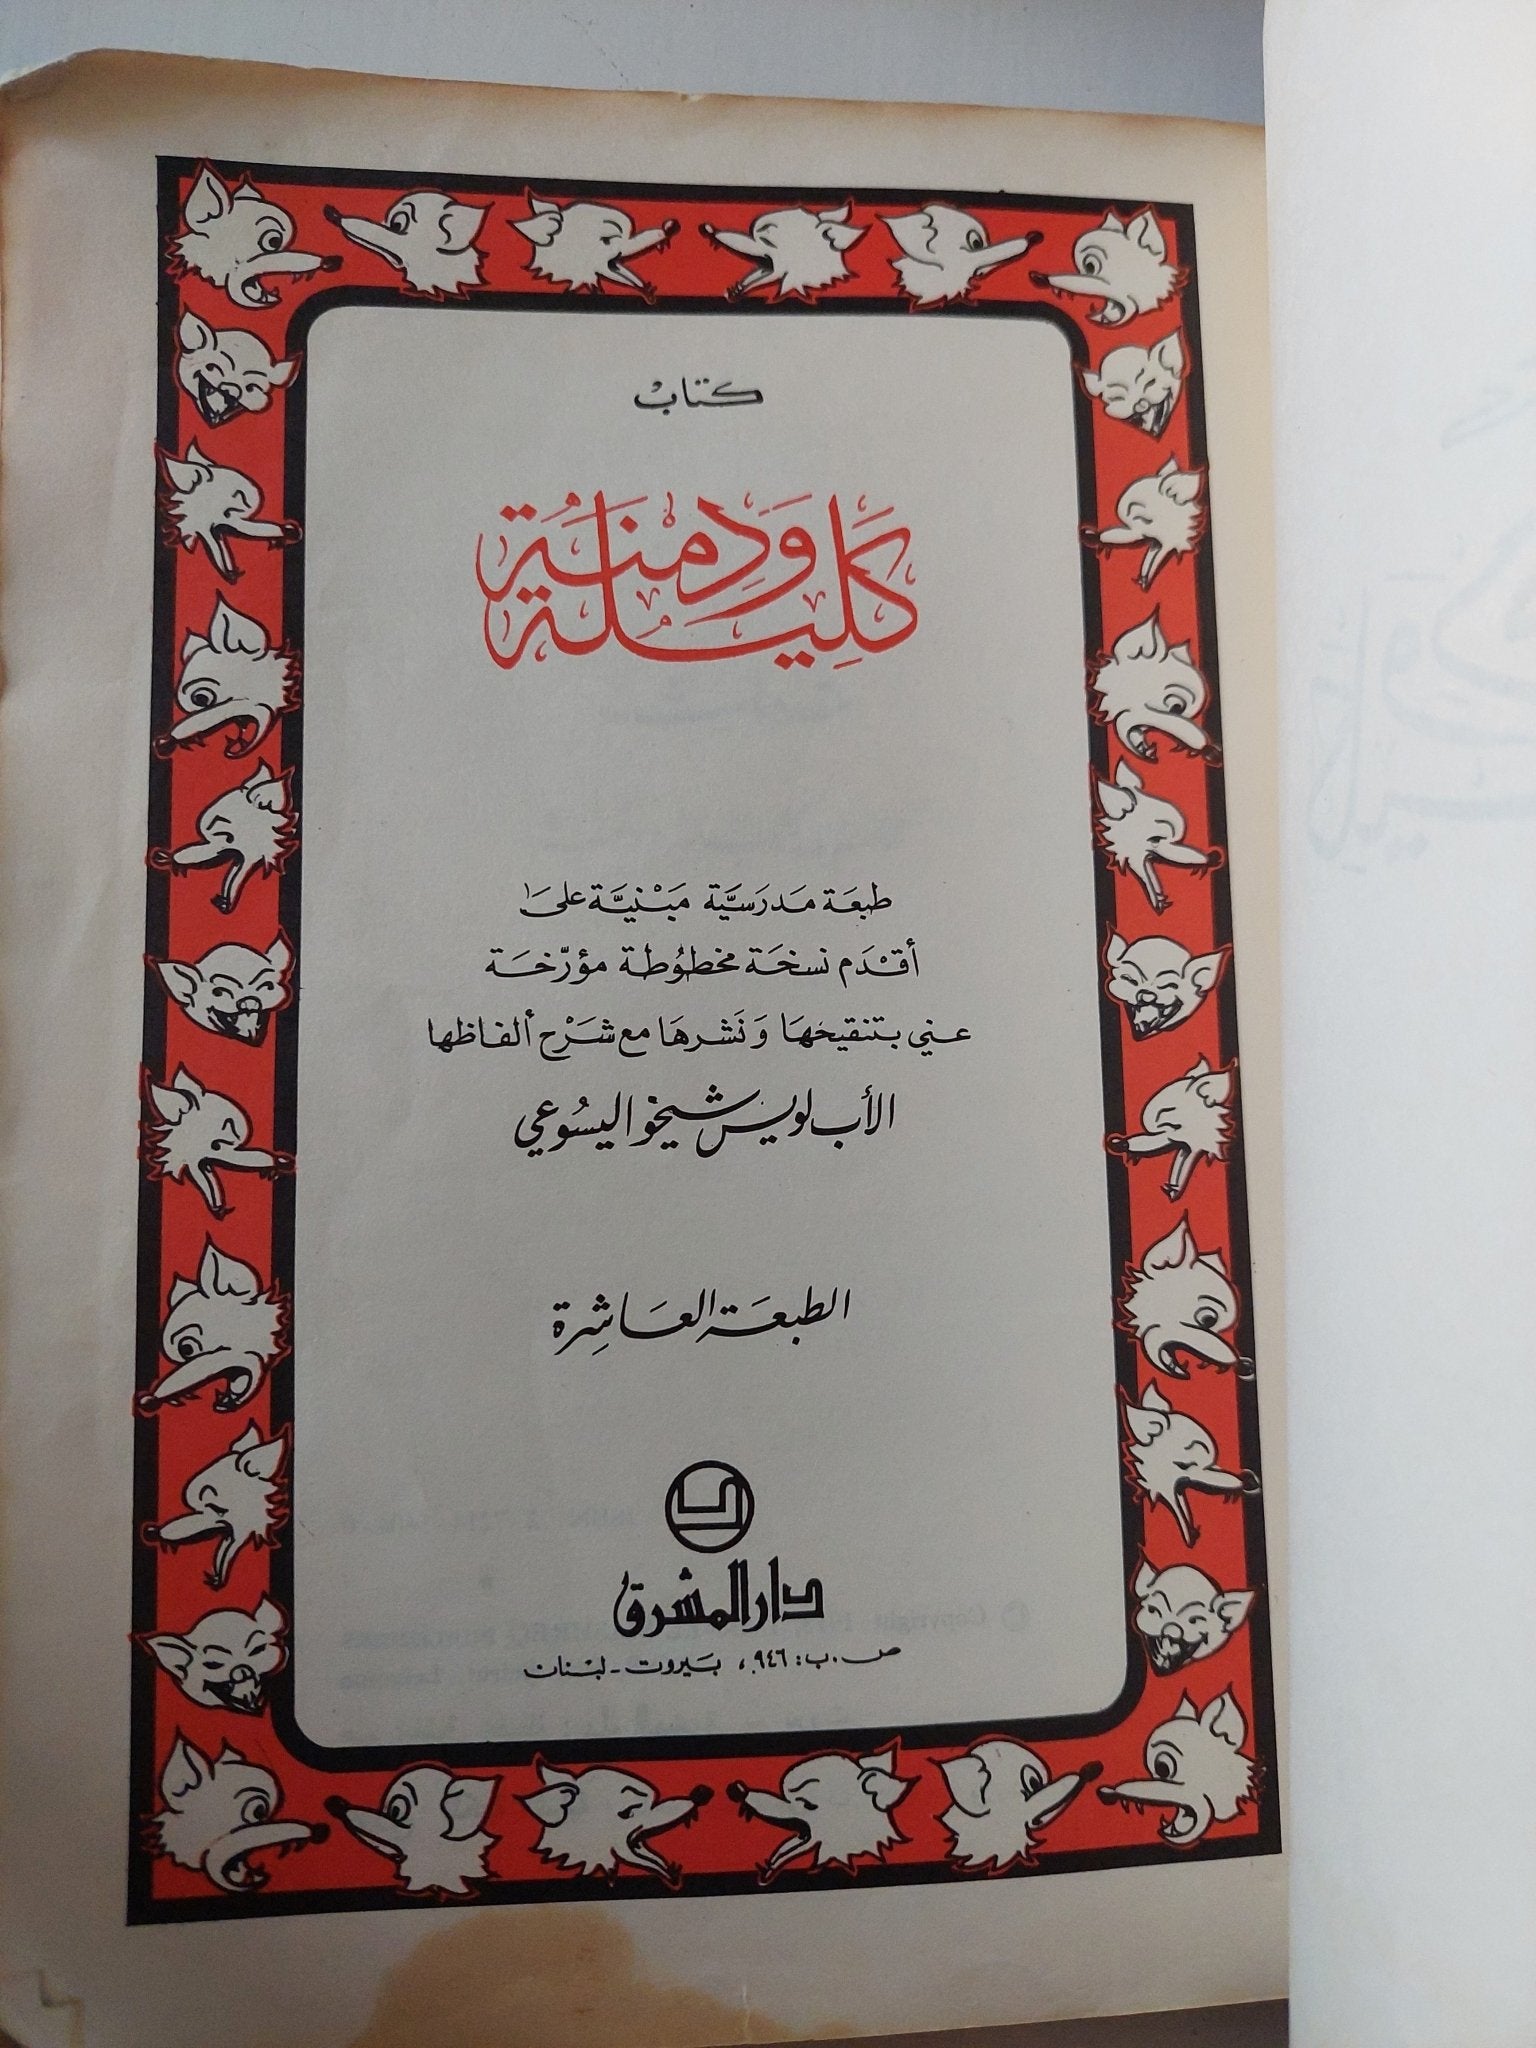 كتابْ
كَلِيلَة وَدِمْنَة
طبعَة مَدرَسيَّة مَبْنيَّة على
أقدَم نسخَة مخطُوطة مؤرّخَة
عني بتنقيحهَا وَنَشرهَا مع شَرْح ألفاظها
الأب لويس شيخو اليسُوعي
الطبعَة العَاشِرة
دار المشرق
ص.ب: ٩٤٦، بَيروت - لبْنان